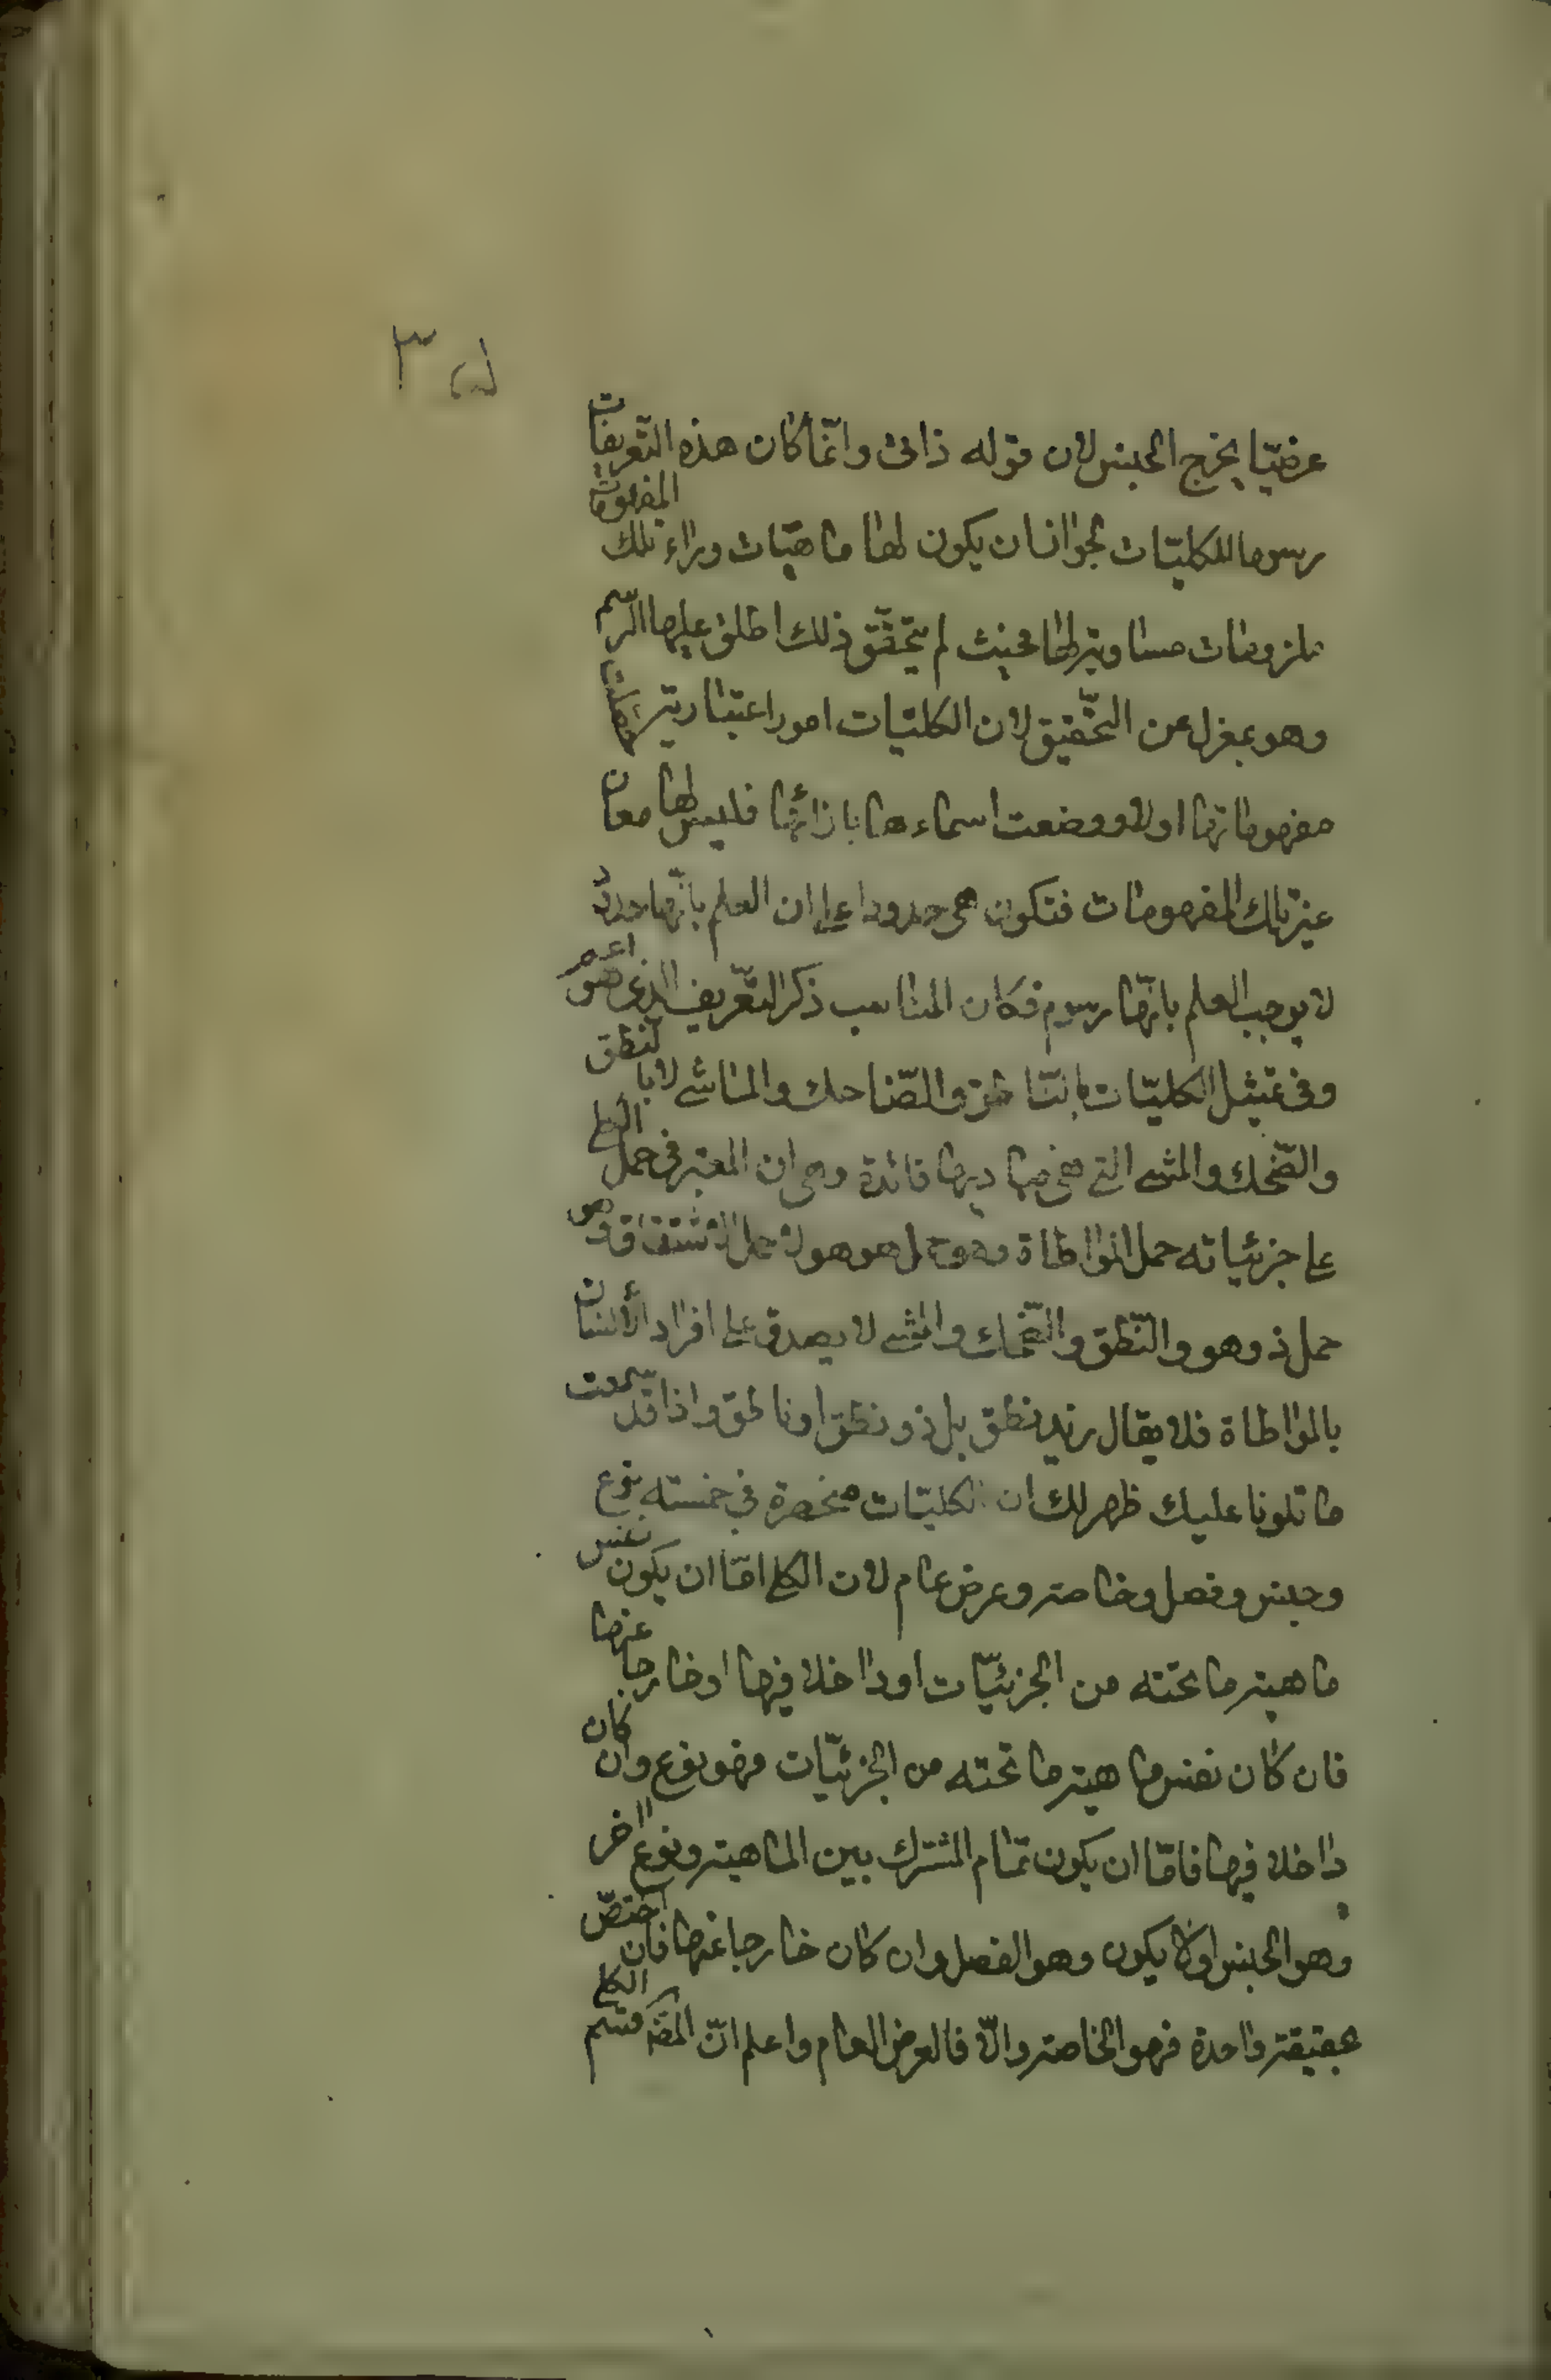 ٣٥
عرضيّا يخرج الجنس لان قوله ذاتى وانّما كان هذه التّعريفات
رسوما للكليّات لجواز ان يكون لها ماهيّات وراء تلك المفهومات
ملزومات مساوية لها فحيث لم يتحقّق ذلك اطلق عليها الرّسم
وهو بمعزل عن التّحقيق لان الكليّات امور اعتبارية حصلت
مفهوماتها اولا ووضعت اسماءها بازائها فليس لها معان
غير تلك المفهومات فتكون هى حدودا على ان العلم بانّها حدود
لا يوجب العلم بانّها رسوم فكان المناسب ذكر التّعريف الذى هو اعم
وفى تمثيل الكليّات بالنّاطق والضّاحك والماشى لا بالنطق
والضّحك والمشى التى هى مباديها فائدة وهى ان المعتبر فى حمل الكلى
على جزئياته حمل المواطاة وهو حمل هو هو لا حمل الاشتقاق وهو
حمل ذو هو والنّطق والضّحك والمشى لا يصدق على افراد الأنسان
بالمواطاة فلا يقال زيد نطق بل ذو نطق او ناطق واذا قد سمعت
ما تلونا عليك ظهر لك ان الكليّات منحصرة فى خمسته نوع
وجنس وفصل وخاصة وعرض عام لان الكلى امّا ان يكون نفس
ماهية ما تحته من الجزئيّات او داخلا فيها او خارجا عنها
فان كان نفس ماهية ما تحته من الجزئيّات فهو نوع وان كان
داخلا فيها فامّا ان يكون تمام المشترك بين الماهية ونوع اخر
وهو الجنس اولا يكون وهو الفصل وان كان خارجا عنها فان اختصّ
بحقيقة واحدة فهو الخاصة والّا فالعرض العام واعلم انّ المصّ قسم الكلى